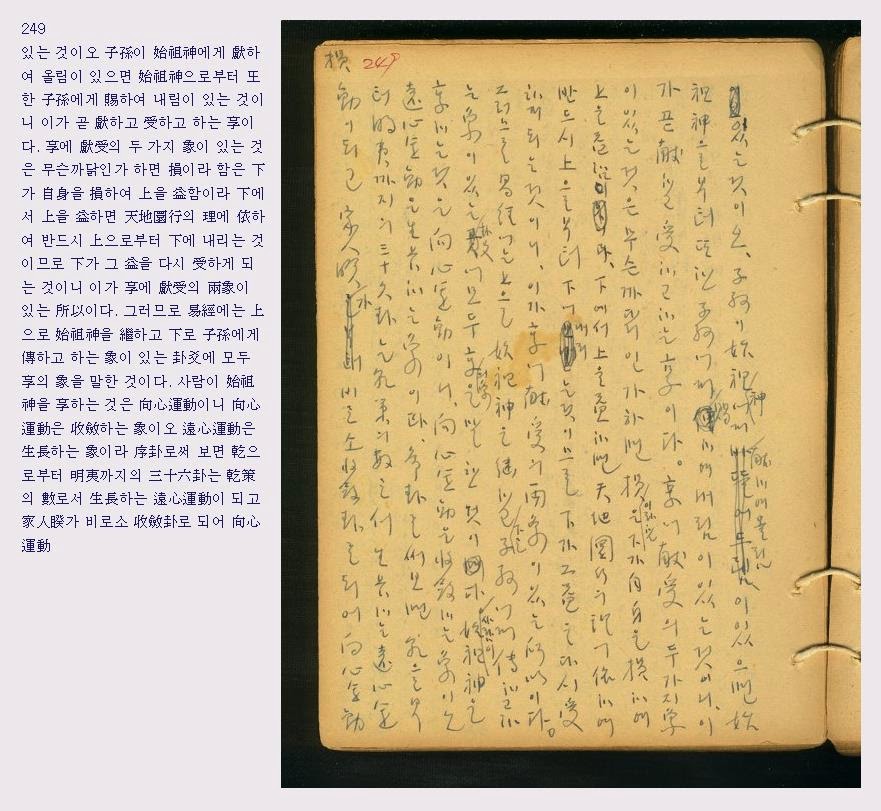 249
있는 것이오 子孫이 始祖神에게 獻하
여 올림이 있으면 始祖神으로부터 또
한 子孫에게 賜하여 내림이 있는 것이
니 이가 곧 獻하고 受하고 하는 享이
다. 享에 獻受의 두 가지 象이 있는 것
은 무슨까닭인가 하면 損이라 함은 下
가 自身을 損하여 上을 益함이라 下에
서 上을 益하면 天地圜行의 理에 依하
여 반드시 上으로부터 下에 내리는 것
이므로 下가 그 益을 다시 受하게 되
는 것이니 이가 享에 獻受의 兩象이
있는 所以이다. 그러므로 易經에는 上
으로 始祖神을 繼하고 下로 子孫에게
傳하고 하는 象이 있는 卦爻에 모두
享의 象을 말한 것이다. 사람이 始祖
神을 享하는 것은 向心運動이니 向心
運動은 收斂하는 象이오 遠心運動은
生長하는 象이라 序卦로써 보면 乾으
로부터 明夷까지의 三十六卦는 乾策
의 數로서 生長하는 遠心運動이 되고
家人睽가 비로소 收斂卦로 되어 向心
運動
損 249
있는 것이오, 子孫이 始祖神에게 獻하여 올림이 있으면 始
祖神으로부터 또한 子孫에게 賜하여 내림이 있는 것이니, 이
가 곧 獻하고 受하고 하는 享이다. 享에 獻受의 두 가지 象
이 있는 것은 무슨 까닭인가 하면 損이라 함은 下가 自身을 損하여
上을 益함이라, 下에서 上을 益하면 天地圜行의 理에 依하여
반드시 上으로부터 下에 내리는 것이므로 下가 그 益을 다시 受
하게 되는 것이니, 이가 享에 獻受의 兩象이 있는 所以이다.
그러므로 易經에는 上으로 始祖神을 繼하고 下로 子孫에게 傳하고 하
는 象이 있는 卦爻에 모두 享의 象을 말한 것이다 사람이 始祖神을
享하는 것은 向心運動이니, 向心運動은 收斂하는 象이오
遠心運動은 生長하는 象이라, 序卦로써 보면 乾으로부
터 明夷까지의 三十六卦는 乾策의 數로서 生長하는 遠心運
動이 되고 家人睽가 비로소 收斂卦로 되어 向心運動